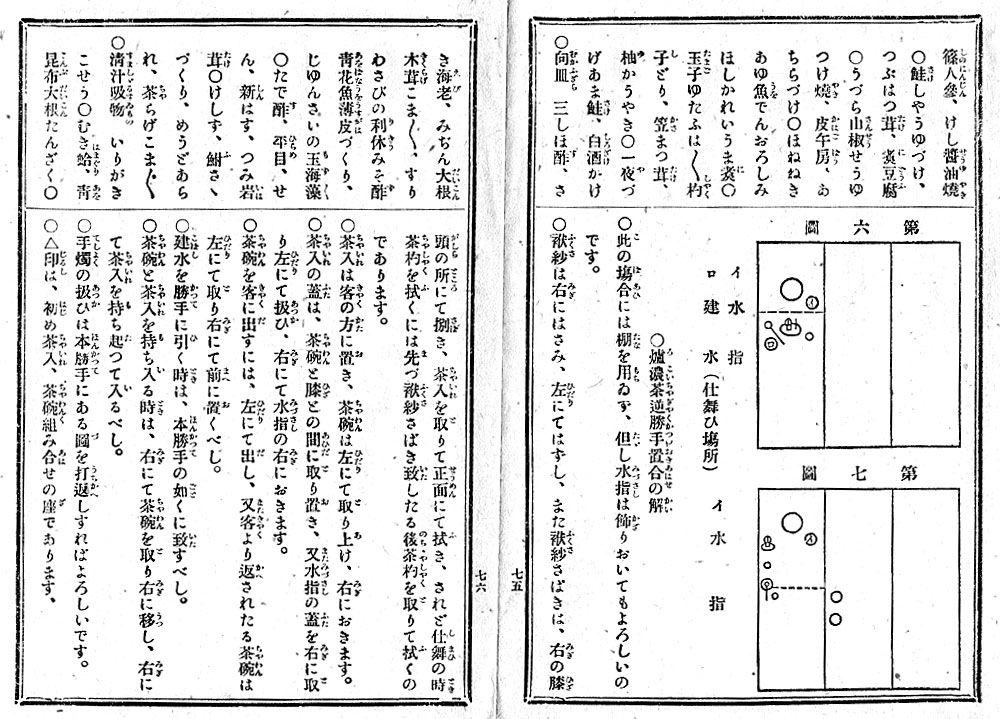 篠人參、けし醤油燒
〇鮭しやうゆづけ、
つぶはつ茸、煑豆腐
〇うづら山椒せうゆ
つけ燒、皮午房、ゐ
ちらづけ〇ほねねき
あゆ魚でんおろしみ
ほしかれいうま煑〇
玉子ゆたふは〱杓
子どり、笠まつ茸、
柚かうやき〇一夜づ
げあま鮭、白酒かけ
〇向皿 三しほ酢、さ
第六圖
イ 水指
ロ 建水(仕舞ひ塲所)
第七圖
イ 水指
〇爐濃茶逆勝手置合の解
〇此の塲合には棚を用ゐず、但し水指は飾りおいてもよろしいの
です。
〇袱紗は右にはさみ、左にてはずし、また袱紗さばきは、右の膝
七五
き海老、みぢん大根
木茸ごま〱、すり
わさびの利休みそ酢
靑花魚薄皮づくり、
じゆんさいの玉海藻
〇たで酢、平目、せ
ん、新はす、つみ岩
茸〇けしず、鮒さゝ
づくり、めうどあら
れ、茶らげごま〱
〇淸汁吸物 いりがき
こせう〇むき蛤、靑
昆布大根たんざく〇
頭の所にて捌き、茶入を取りて正面にて拭き、されど仕舞の時
茶杓を拭くには先づ袱紗さばき致したる後茶杓を取りて拭くの
であります。
〇茶入は客の方に置き、茶碗は左にて取り上け、右におきます。
〇茶入の蓋は、茶碗と膝との間に取り置き、又水指の蓋を右に取
り左にて扱ひ、右にて水指の右におきます。
〇茶碗を客に出すには、左にて出し、又客より返されたる茶碗は
左にて取り右にて前に置くべし。
〇建水を勝手に引く時は、本勝手の如くに致すべし。
〇茶碗と茶入を持ち入る時は、右にて茶碗を取り右に移し、右に
て茶入を持ち起つて入るべし。
〇手燭の扱ひは本勝手にある圖を打返しすればよろしいです。
〇△印は、初め茶入、茶碗組み合せの座であります、
七六